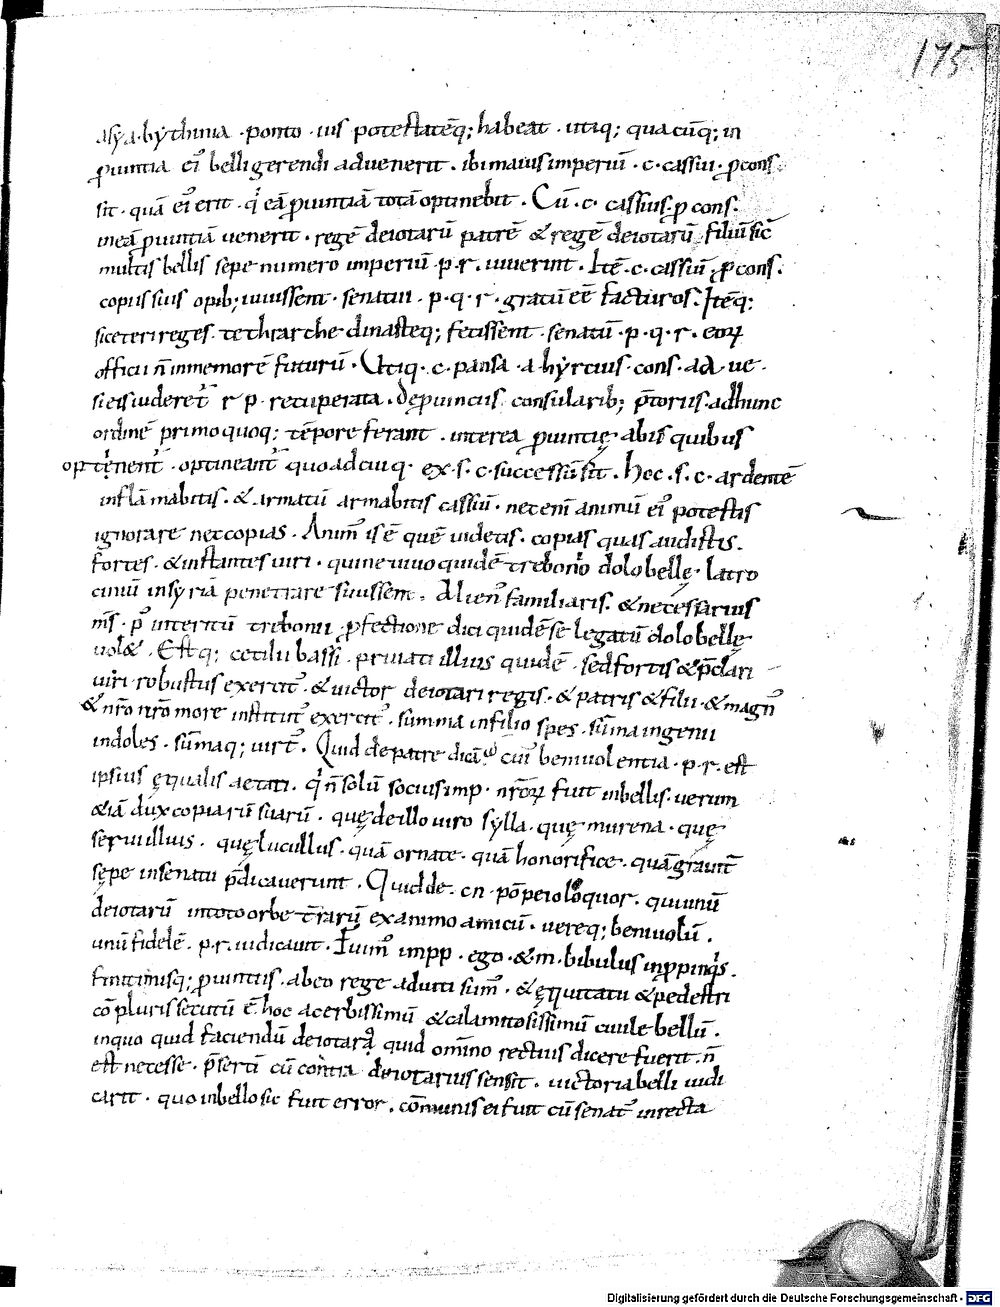 175
asya·bythinia ·ponto ·ius potestatēq; habeat ·utiq; quacūq; in
ꝓuintia ei᾽ belli gerendi aduenerit · ibi maius imperiū ·c·cassiu·ꝓcons·
sit·quā ei᾽ erit·q᾽ eā ꝓuintiā totā optinebit · Cū·c·cassius·ꝓ cons·
ineā ꝓuintiā uenerit·regē deiotarū patrē & regē deiotarū filiū sic̄
multis bellis sepe numero imperiū·p·r·iuuerint·Itē·c·cassiū ꝓcons·
copiis suis opib; iuuissent·senatui·p·q·r·gratū eē facturos·Itēq;
siceteri reges·tethrarche dinasteq; fecissent·senatū·p·q·r·eoꝝ
officii n̄ inmemorē futurū·Utiq·c·pansa·a·hyrtius·cons·ad·ue·
si eis uideret᾽ r p·recuperata·De ꝓuinciis consularib; p̄toriis·adhunc
ordinē primo quoq; tēpore ferant·interea ꝓuintię abis quibus
optenent᾽·optineant᾽ quoad cuiq·ex·s·c·successū sit·hec·s·c·ardentē
inflāmabitis·& armatū armabitis cassiū·nec enī animū ei᾽ potestis
ignorare nec copias·Anim᾽ is ē quē uidetis·copias quas audistis·
fortes·& instantes uiri·qui ne uiuo quidē trebonio dolobellę·latro
ciniū insyriā penetrare siuissent·Allien᾽ familiaris·& necessarius
m̄s·p᾽ interitū trebonii·ꝓfectione dici quidē se legatū dolobellę
uol&·Est q; cecilii bassi·priuati illius quidē·sed fortis & p̄clari
uiri·robustus exercit᾽·& uictor deiotari regis·& patris & filii·& magn᾽
& nr̄o nr̄o more institut᾽ exercit᾽·summa infilio spes·sūma ingenii
indoles·sūmaq; uirt᾽·Quid de patre dicā·cui᾽ beniuolentia·p·r·est
ipsius ęqualis aetati·q᾽ n̄ solū socius imp·nr̄oꝝ fuit inbellis·uerum
&iā dux copiarū suarū·quę de illo uiro sylla·quę murena·quę
seruilius·quę lucullus·quā ornate·quā honorifice·quā grauit̄
sepe insenatu p̄dicauerunt·Quid de·cn·pōpeio loquor·qui unū
deiotarū intoto orbe t̄rarū ex animo amicū·uereq; beniuolū·
unū fidelē·p·r·iudicauit·Fuim᾽ impp·ego·& m·bibulus in ꝓpinq᾽s·
finitimisq; ꝓuintiis·ab eo rege adiuti sum᾽·& ęquitatu & pedestri
cōpluris secutū ē hoc acerbissimū & calamitosissimū ciuile bellū·
inquo quid faciendū deiotaro quid omīno rectius dicere fuerit·n̄
est necesse·p̄sertī cū contra deiotarius sensit·uictoria belli iudi
carit·quo inbello sic fuit error·cōmunis ei fuit cū senat᾽ in recta
Digitalisierung gefördert durch die Deutsche Forschungsgemeinschaft - DFG